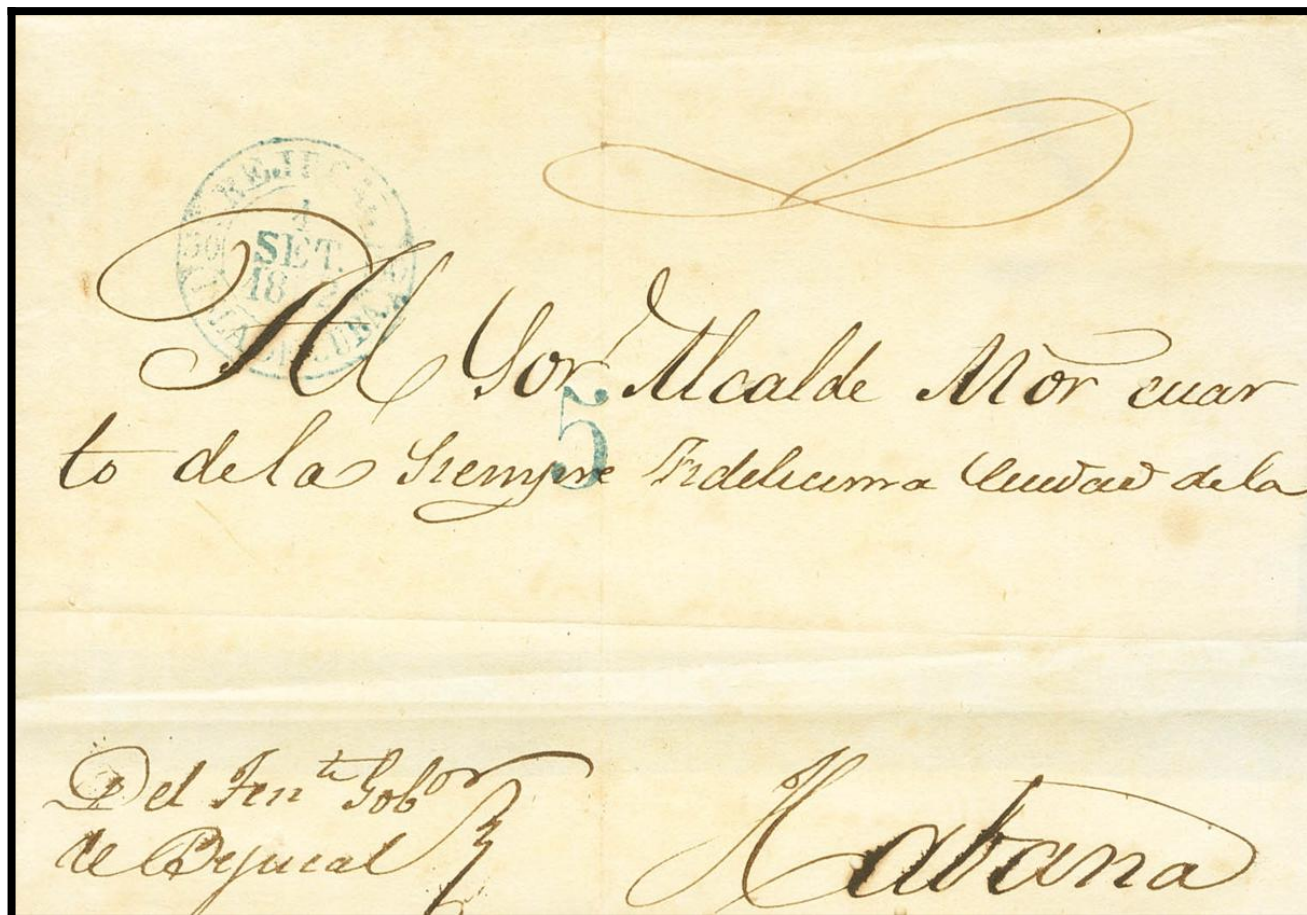 BEJUCAL
4
SET.
18
Al Sor. Alcalde Mor cuar
5
to de la Siempre Fidelisima Ciudad de la
Del Tente Gobor
de Bejucal
Habana